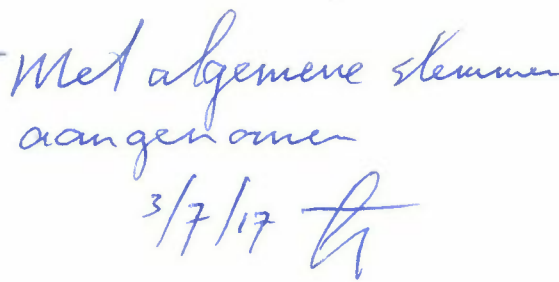 Met algemene stemmen
aangenomen
3/7/17